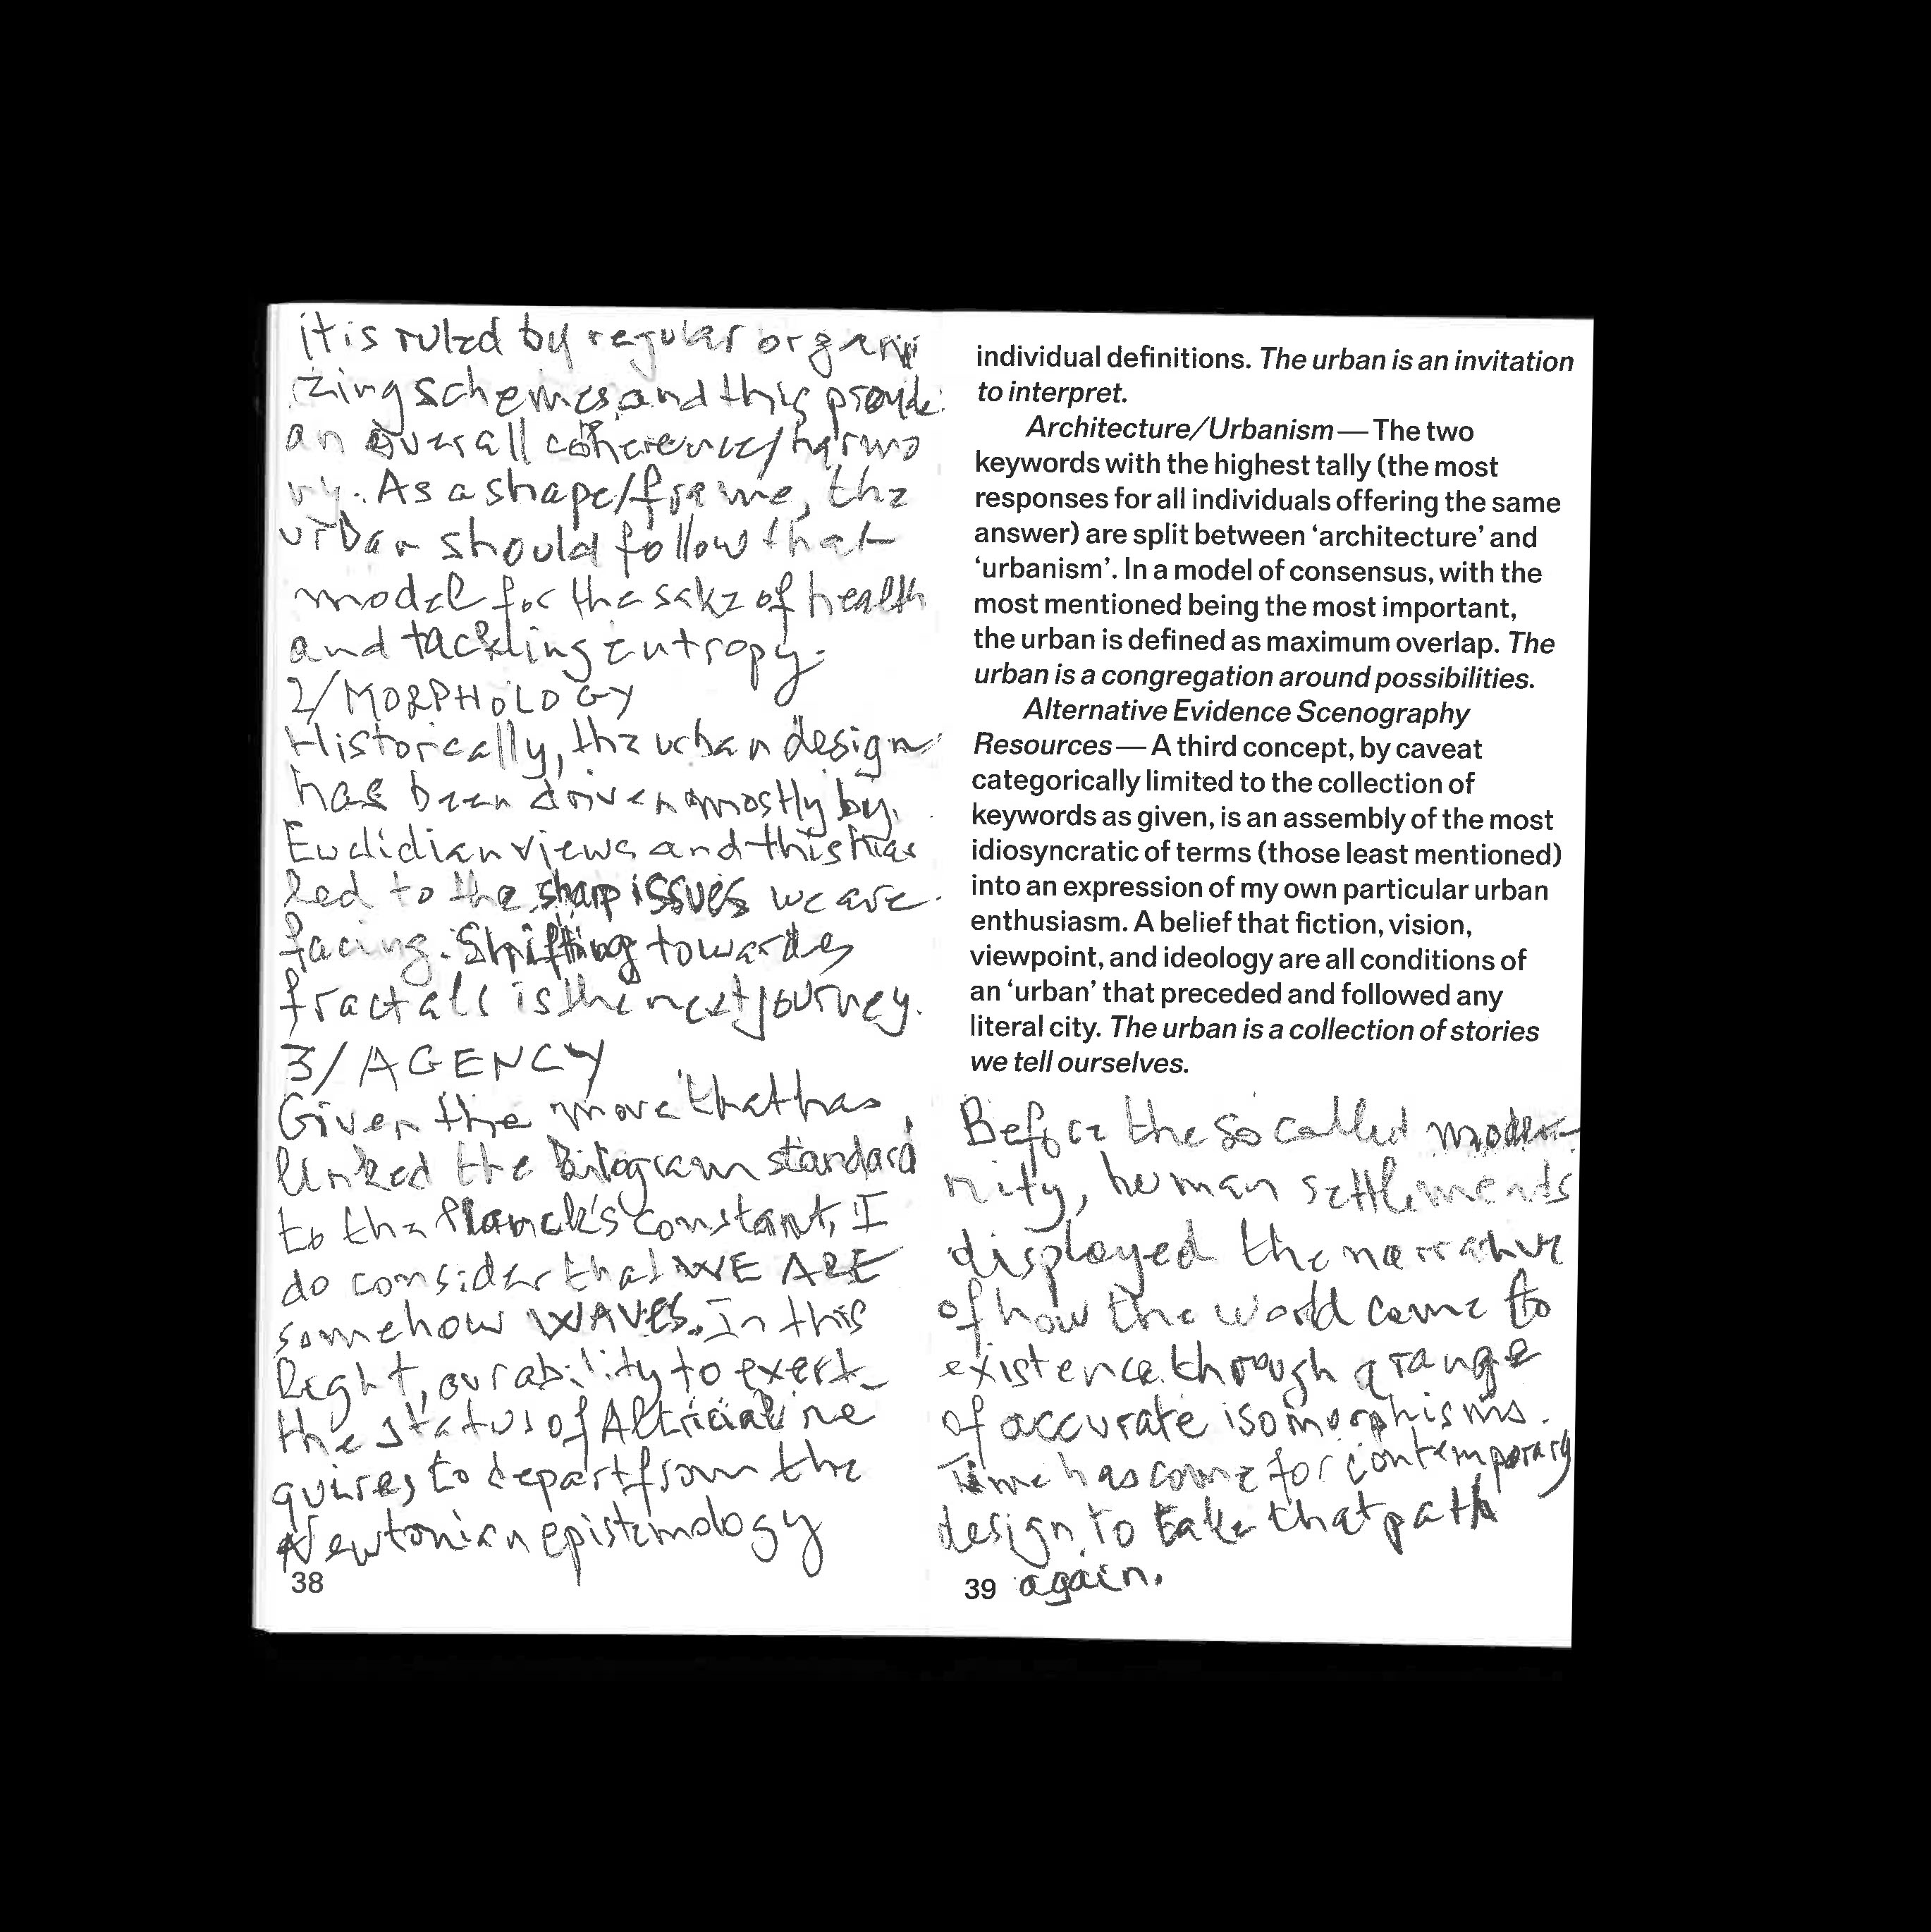 it is ruled by regular organi
zing schemes, and this provide
an overall coherence/harmo
ny. As a shape/frame, the
urban should follow that
model for the sake of health
and tackling entropy.
2/MORPHOLOGY
Historically, the urban design
has been driven mostly by
Euclidian views and this has
led to the sharp issues we are
facing. Shifting towards
fractals is the next journey.
3/AGENCY
Given the move that has
linked the kilogram standard
to the Planck's constant, I
do consider that WE ARE
somehow WAVES. In this
light, our ability to exert
the status of Altricial re
quires to depart from the
Newtonian epistemology
38
individual definitions. The urban is an invitation
to interpret.
Architecture/Urbanism—The two
keywords with the highest tally (the most
responses for all individuals offering the same
answer) are split between ‘architecture’ and
‘urbanism’. In a model of consensus, with the
most mentioned being the most important,
the urban is defined as maximum overlap. The
urban is a congregation around possibilities.
Alternative Evidence Scenography
Resources—A third concept, by caveat
categorically limited to the collection of
keywords as given, is an assembly of the most
idiosyncratic of terms (those least mentioned)
into an expression of my own particular urban
enthusiasm. A belief that fiction, vision,
viewpoint, and ideology are all conditions of
an ‘urban’ that preceded and followed any
literal city. The urban is a collection of stories
we tell ourselves.
Before the so called moder-
nity, human settlements
displayed the narrative
of how the world come to
existence through a range
of accurate isomorphisms.
Time has come for contemporary
design to take that path
39 again.